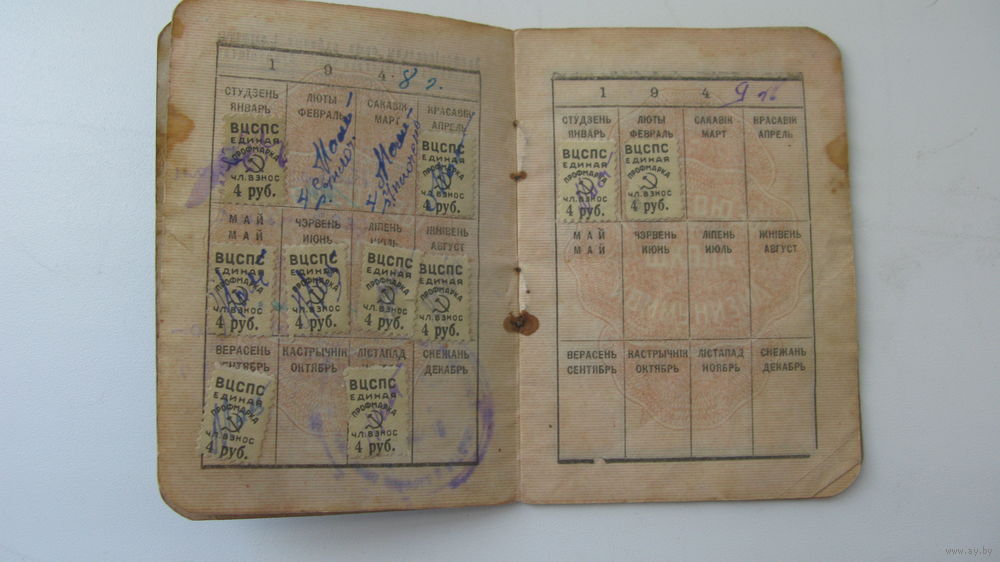 1 9 4 8 г.
СТУДЗЕНЬ ЛЮТЫ САКАВІК КРАСАВІК
ЯНВАРЬ ФЕВРАЛЬ МАРТ АПРЕЛЬ
ВЦСПС
ЕДИНАЯ
ПРОФМАРКА
ЧЛ. ВЗНОС
4 руб.
ВЦСПС
ЕДИНАЯ
ПРОФМАРКА
ЧЛ. ВЗНОС
4 руб.
МАЙ ЧЭРВЕНЬ ЛІПЕНЬ ЖНІВЕНЬ
МАЙ ИЮНЬ ИЮЛЬ АВГУСТ
ВЦСПС
ЕДИНАЯ
ПРОФМАРКА
ЧЛ. ВЗНОС
4 руб.
ВЦСПС
ЕДИНАЯ
ПРОФМАРКА
ЧЛ. ВЗНОС
4 руб.
ВЦСПС
ЕДИНАЯ
ПРОФМАРКА
ЧЛ. ВЗНОС
4 руб.
ВЦСПС
ЕДИНАЯ
ПРОФМАРКА
ЧЛ. ВЗНОС
4 руб.
ВЕРАСЕНЬ КАСТРЫЧНІК ЛІСТАПАД СНЕЖАНЬ
СЕНТЯБРЬ ОКТЯБРЬ ДЕКАБРЬ
ВЦСПС
ЕДИНАЯ
ПРОФМАРКА
ЧЛ. ВЗНОС
4 руб.
ВЦСПС
ЕДИНАЯ
ПРОФМАРКА
ЧЛ. ВЗНОС
4 руб.
1 9 4 9
СТУДЗЕНЬ ЛЮТЫ САКАВІК КРАСАВІК
ЯНВАРЬ ФЕВРАЛЬ МАРТ АПРЕЛЬ
ВЦСПС
ЕДИНАЯ
ПРОФМАРКА
ЧЛ. ВЗНОС
4 руб.
ВЦСПС
ЕДИНАЯ
ПРОФМАРКА
ЧЛ. ВЗНОС
4 руб.
МАЙ ЧЭРВЕНЬ ЛІПЕНЬ ЖНІВЕНЬ
МАЙ ИЮНЬ ИЮЛЬ АВГУСТ
ВЕРАСЕНЬ КАСТРЫЧНІК ЛІСТАПАД СНЕЖАНЬ
СЕНТЯБРЬ ОКТЯБРЬ НОЯБРЬ ДЕКАБРЬ
www.ay.by